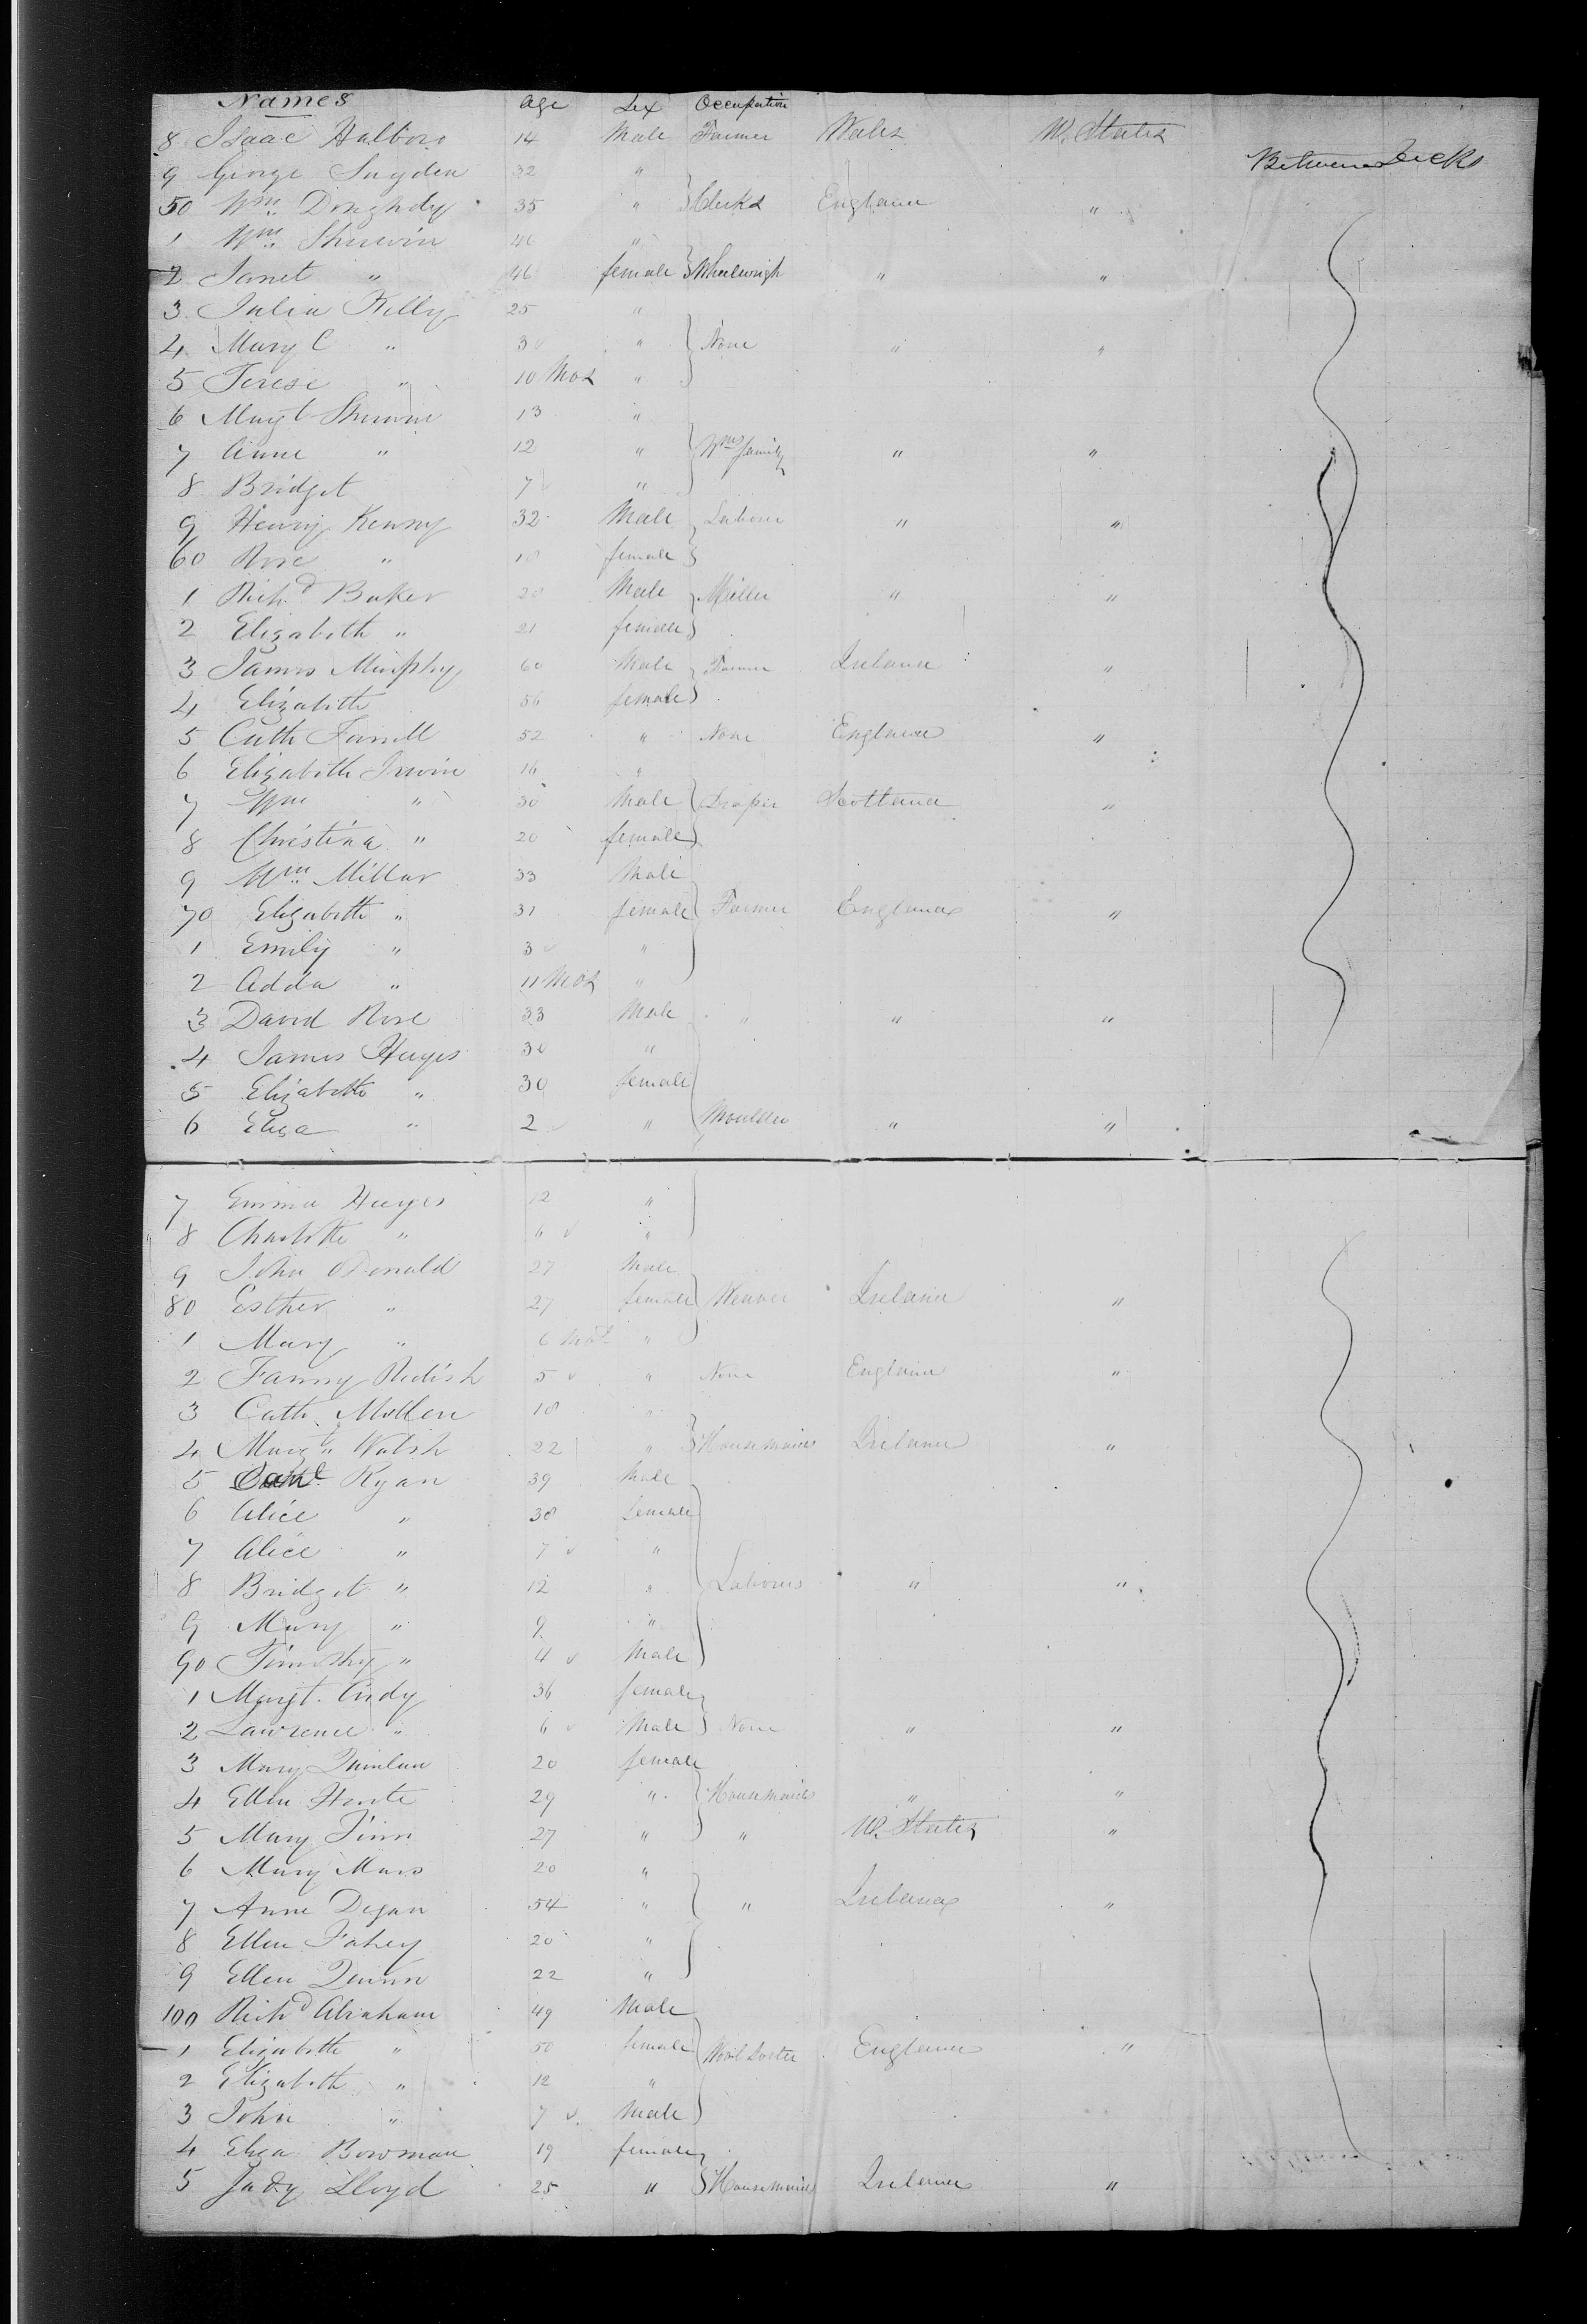 Names Age Sex Occupation
8 Isaac Halboro 14 Male Farmer Wales U. States
9 George Sugden 32 " Between Decks
50 Wm Donghdy 35 " } Clerks England "
1 Wm Sherwin 46 "
2 Janet " 46 female } Wheelwrigh " "
3 Julia Kelly 25 "
4 Mary C " 3 " } None " "
5 Terese " 10 Mos "
6 Magt Sherwin 13 "
7 Anne " 12 " } Wms family " "
8 Bridget 7 "
9 Henry Kenny 32 Male } Labour " "
60 Rose " 18 female
1 Richd Baker 20 Male } Miller " "
2 Elizabeth " 21 female
3 James Murphy 60 Male } Farmer Ireland "
4 Elizabeth 56 female
5 Cath Farrell 52 " None England "
6 Elizabeth Irwin 16 "
7 Wm " 30 Male } Draper Scotland "
8 Christina " 20 female
9 Wm Millar 33 Male
70 Elizabeth " 31 female } Farmer England "
1 Emily " 3 "
2 Adda " 11 Mos "
3 David Rose 33 Male " " "
4 James Hayes 30 "
5 Elizabeth " 30 female
6 Eliza " 2 " } Moulder " "
7 Emma Hayes 12 "
8 Charlotte " 6 "
9 John ODonald 27 Male
80 Esther " 27 female } Weaver Ireland "
1 Mary " 6 Mos "
2 Fanny Redish 5 " None England "
3 Cath Mullen 18 "
4 Margt Walsh 22 " } Housemaids Ireland "
5 Danl Ryan 39 Male
6 Alice " 38 female
7 Alice " 7 "
8 Bridget " 12 " } Labourers " "
9 Mary " 9 "
90 Timothy " 4 Male
1 Margt. Cudy 36 female
2 Lawrence " 6 Male } None " "
3 Mary Quinlan 20 female
4 Ellen 29 " } Housemaids " "
5 Mary Finn 27 " " U. States "
6 Mary Mars 20 "
7 Anne Degan 54 " } " Ireland "
8 Ellen Fahey 20 "
9 Ellen Quinn 22 "
100 Richd Abraham 49 Male
1 Elizabeth " 50 female } Wool Sorter England "
2 Elizabeth " 12 "
3 John " 7 Male
4 Eliza Bowman 19 female
5 Judy Lloyd 25 " } Housemaids Ireland "